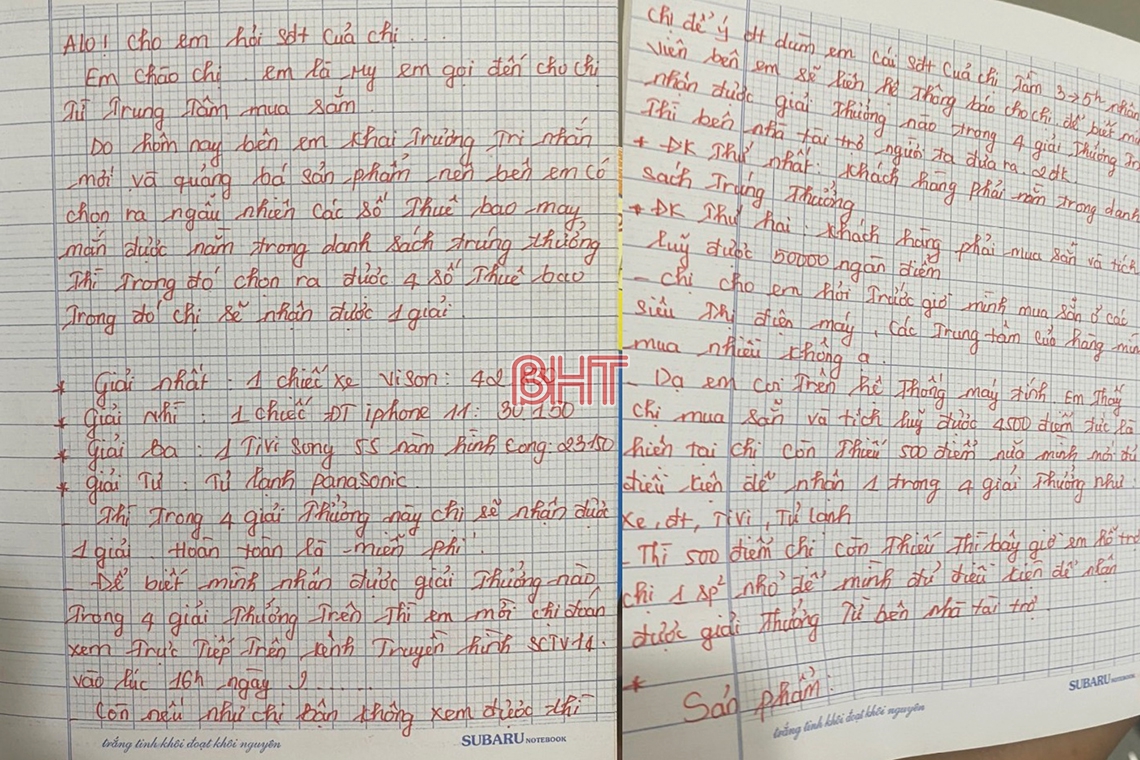 Alo! cho em hỏi sđt của chị....
Em chào chị. em là My em gọi đến cho chị
từ Trung Tâm mua sắm.
Do hôm nay bên em khai trương tri nhánh
mới và quảng bá sản phẩm nên bên em có
chọn ra ngẫu nhiên các số thuê bao may
mắn được nằm trong danh sách trúng thưởng
Thì Trong đó chọn ra được 4 số thuê bao
Trong đó chị sẽ nhận được 1 giải.
* Giải nhất: 1 chiếc xe Vison: 42
* Giải nhì: 1 chiếc ĐT iphone 11: 30 150
* Giải ba: 1 TiVi Song 55 năm hình Cong: 23.150
* Giải Tư: Tủ lạnh panasonic
Thì Trong 4 giải Thưởng này chị sẽ nhận được
1 giải Hoàn toàn là miễn phí.
Để biết mình nhận được giải Thưởng nào
Trong 4 giải Thưởng Trên Thì em mời chị đoán
xem Trực Tiếp Trên kênh Truyền hình SCTV14.
vào lúc 16h ngày
Còn nếu như chị bận không xem được thì
trắng tinh khôi đoạt khôi nguyên
SUBARU NOTEBOOK
chị để ý đt dùm em cái sđt của chị Tầm 3→5h nhân
viên bên em sẽ liên hệ thông báo cho chị để biết
nhận được giải Thưởng nào trong 4 giải Thưởng
Thì bên nhà tài trợ người ta đưa ra 2đk
+ ĐK Thứ nhất: khách hàng phải nằm trong danh
sách Trúng Thưởng
+ ĐK Thứ hai: khách hàng phải mua sắn và tích
luỹ được 50000 ngàn điểm
- Chị cho em hỏi Trước giờ mình mua sắn ở các
siêu Thị điện máy, các Trung tâm cửa hàng
mua nhiều không ạ.
- Dạ em coi Trên hệ Thống máy tính. Em Thấy
chị mua sắn và tích luỹ được 4500 điểm tức là
hiện tại chị còn Thiếu 500 điểm nữa mình mới đủ
điều kiện để nhận 1 trong 4 giải Thưởng như:
Xe, đt, TiVi, Tủ lạnh
- Thì 500 điểm chị còn Thiếu Thì bây giờ em hỗ trợ
chị 1 sp² nhỏ để mình đủ điều kiện để nhận
được giải Thưởng Từ bên nhà tài trợ.
* Sản phẩm:
trắng tinh khôi đoạt khôi nguyên
SUBARU NOTEBOOK
BHT